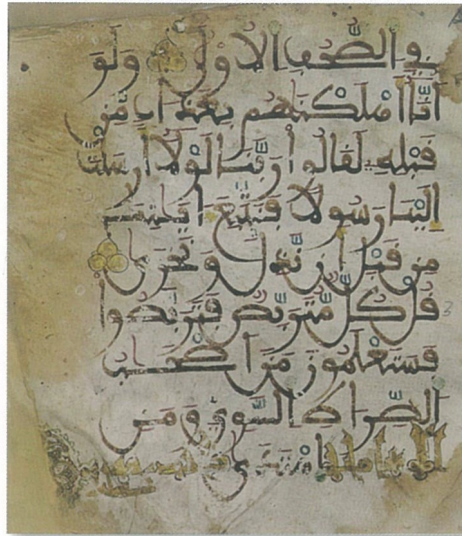 فِي الصُّحُفِ الْأُولَىٰ وَلَوْ
أَنَّا أَهْلَكْنَٰهُم بِعَذَابٍ مِّن
قَبْلِهِ لَقَالُوا رَبَّنَا لَوْلَا أَرْسَلْتَ
إِلَيْنَا رَسُولًا فَنَتَّبِعَ ءَايَٰتِكَ
مِن قَبْلِ أَن نَّذِلَّ وَنَخْزَىٰ
قُلْ كُلٌّ مُّتَرَبِّصٌ فَتَرَبَّصُوا
فَسَتَعْلَمُونَ مَنْ أَصْحَٰبُ
الصِّرَٰطِ السَّوِيِّ وَمَنِ
اهْتَدَىٰ